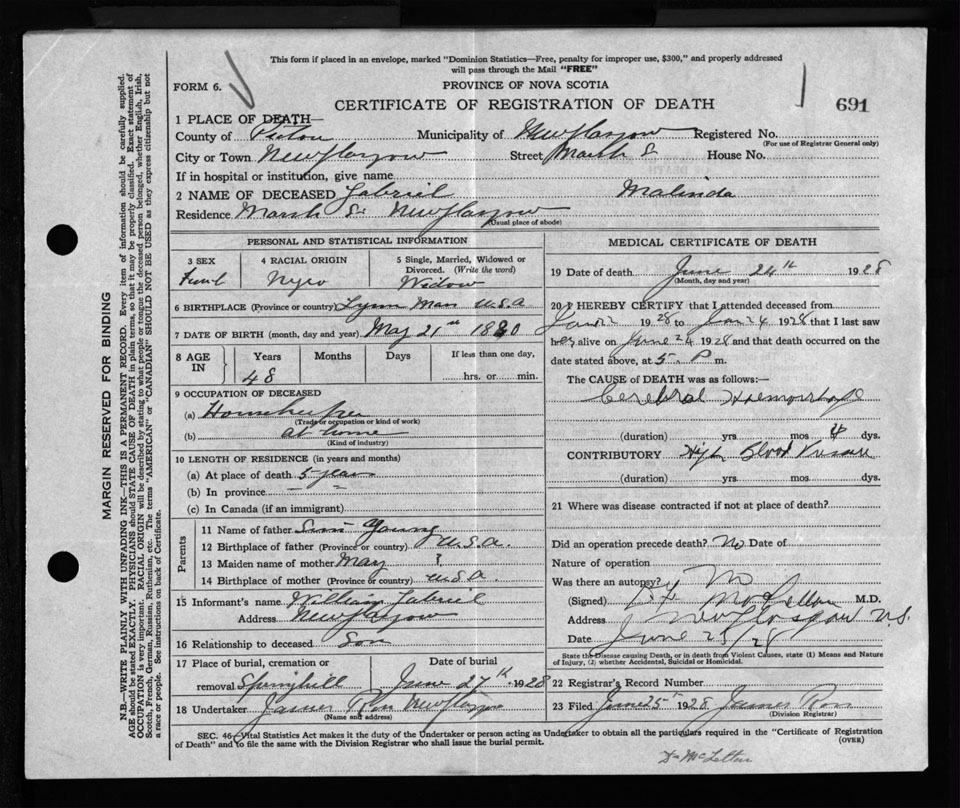 This form if placed in an envelope, marked "Dominion Statistics—Free, penalty for improper use, $300," and properly addressed
will pass through the Mail "FREE"
FORM 6.
PROVINCE OF NOVA SCOTIA
CERTIFICATE OF REGISTRATION OF DEATH
691
1 PLACE OF DEATH—
County of Pictou Municipality of New Glasgow Registered No.
(For use of Registrar General only)
City or Town New Glasgow Street Marsh St House No.
If in hospital or institution, give name
2 NAME OF DECEASED Gabriel Malinda
Residence Marsh St New Glasgow
(Usual place of abode)
PERSONAL AND STATISTICAL INFORMATION
3 SEX
4 RACIAL ORIGIN
5 Single, Married, Widowed or
Divorced. (Write the word)
Negro Widow
6 BIRTHPLACE (Province or country) Lynn U.S.A
7 DATE OF BIRTH (month, day and year) May 21st 1880
8 AGE IN
Years Months Days If less than one day,
48 hrs. or min.
9 OCCUPATION OF DECEASED
(a) Housekeeper
(Trade or occupation or kind of work)
(b) at home
(Kind of industry)
10 LENGTH OF RESIDENCE (in years and months)
(a) At place of death 5 years
(b) In province — "
(c) In Canada (if an immigrant)
Parents
11 Name of father Young
12 Birthplace of father (Province or country) U.S.A.
13 Maiden name of mother May ?
14 Birthplace of mother (Province or country) U.S.A.
15 Informant's name William Gabriel
Address New Glasgow
16 Relationship to deceased Son
17 Place of burial, cremation or
removal Springhill
Date of burial
June 27th 1928
18 Undertaker James Ross New Glasgow
(Name and address)
MEDICAL CERTIFICATE OF DEATH
19 Date of death June 24th 1928
(Month, day and year)
20 I HEREBY CERTIFY that I attended deceased from
1928 to 24 1928 that I last saw
her alive on June 24 1928 and that death occurred on the
date stated above, at 5 P m.
The CAUSE of DEATH was as follows:—
Cerebral Haemorrhage
(duration) yrs mos dys.
CONTRIBUTORY High Blood Pressure
(duration) yrs. mos. dys.
21 Where was disease contracted if not at place of death?
Did an operation precede death? No Date of
Nature of operation
Was there an autopsy? No
(Signed) M.D.
Address New Glasgow N.S.
Date June 25/28
State the Disease causing Death, or in death from Violent Causes, state (1) Means and Nature
of Injury, (2) whether Accidental, Suicidal or Homicidal.
22 Registrar's Record Number
23 Filed June 25th 1928 James Ross
(Division Registrar)
SEC. 46—Vital Statistics Act makes it the duty of the Undertaker or person acting as Undertaker to obtain all the particulars required in the "Certificate of Registration
of Death" and to file the same with the Division Registrar who shall issue the burial permit.
(OVER)
MARGIN RESERVED FOR BINDING
N.B.—WRITE PLAINLY WITH UNFADING INK—THIS IS A PERMANENT RECORD. Every item of information should be carefully supplied.
AGE should be stated EXACTLY. PHYSICIANS should STATE CAUSE OF DEATH in plain terms, so that it may be properly classified. Exact statement of
OCCUPATION is very important. RACIAL ORIGIN will be described by stating to what people or tongue the deceased person belonged, whether English, Irish,
Scotch, French, German, Russian, Ruthenian, etc. The terms "AMERICAN" or "CANADIAN" SHOULD NOT BE USED as they express citizenship but not
a race or people. See instructions on back of Certificate.